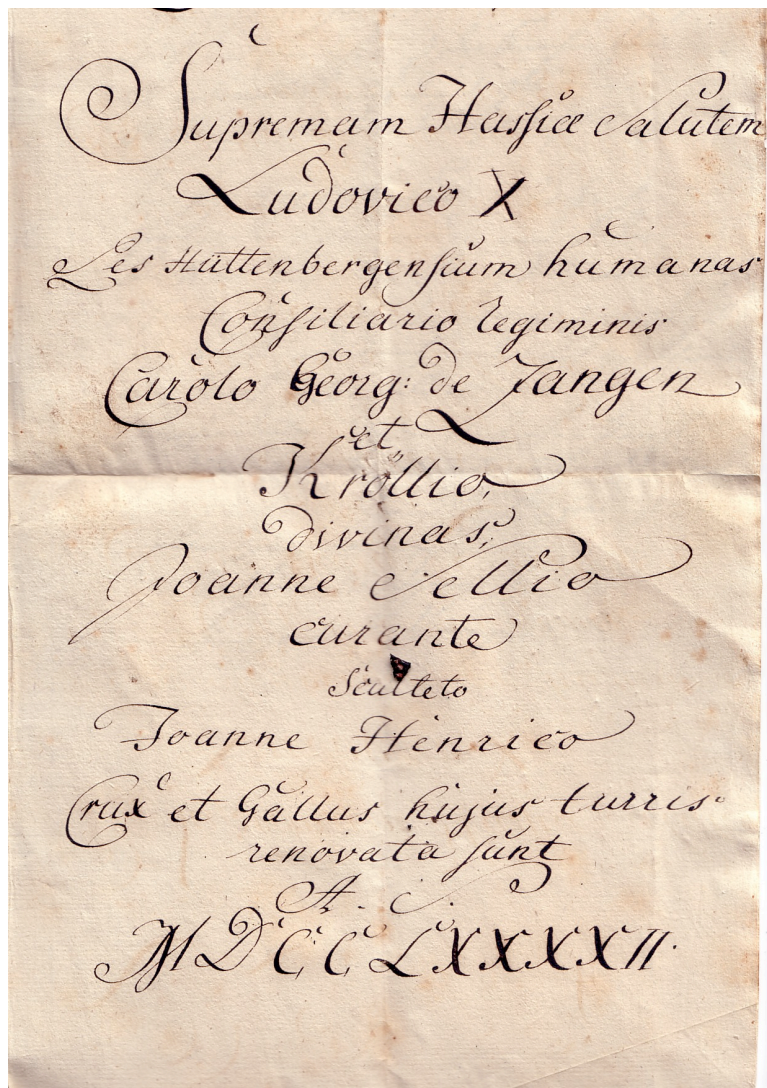 Supremam Hassiæ Salutem
Ludovico X
Res Hüttenbergensium humanas
Consiliario regiminis
Carolo Georg: de Zangen
et
Kröllio,
divinas,
Joanne Sellio
curante
Sculteto
Joanne Henrico
Crux et Gallus hujus turris
renovata sunt
A. C.
MDCCLXXXXII.